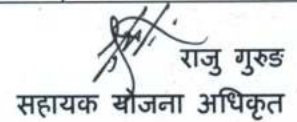 राजु गुरुङ
सहायक योजना अधिकृत